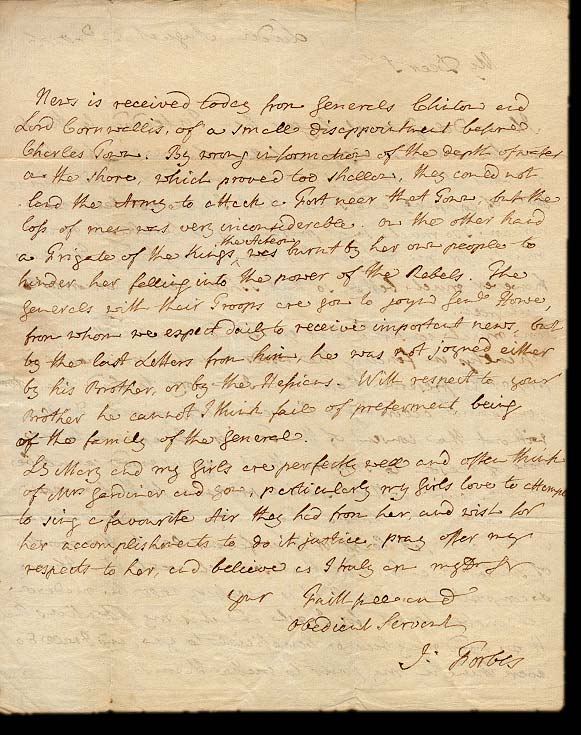 News is received today from Generals Clinton and
Lord Cornwallis, of a small disappointment before
Charles Town. By wrong information of the depth of water
on the shore, which proved too shallow, they coud not
land the Army to attack a Fort near that Town, but the
loss of men was very inconsiderable. on the other hand
the Acteon
a Frigate of the Kings, was burnt by her own people to
hinder her falling into the power of the Rebels. The
Generals with their Troops are gon to joyn Genl. Howe,
from whom we expect daily to receive important news, but
by the last Letters from him, he was not joyned either
by his Brother, or by the Hessians. With respect to your
Brother he cannot I think fail of preferment, being
of the family of the General.
Ly Mary and my Girls are perfectly well and often think
of Mrs Gardiner and you, particularly my Girls love to attempt
to sing a favourite Air they had from her, and wish for
her accomplishments to do it justice, pray offer my
respects to her, and believe as I truly am my Dr Sr
Your Faithfull and
Obedient Servant
J: Forbes